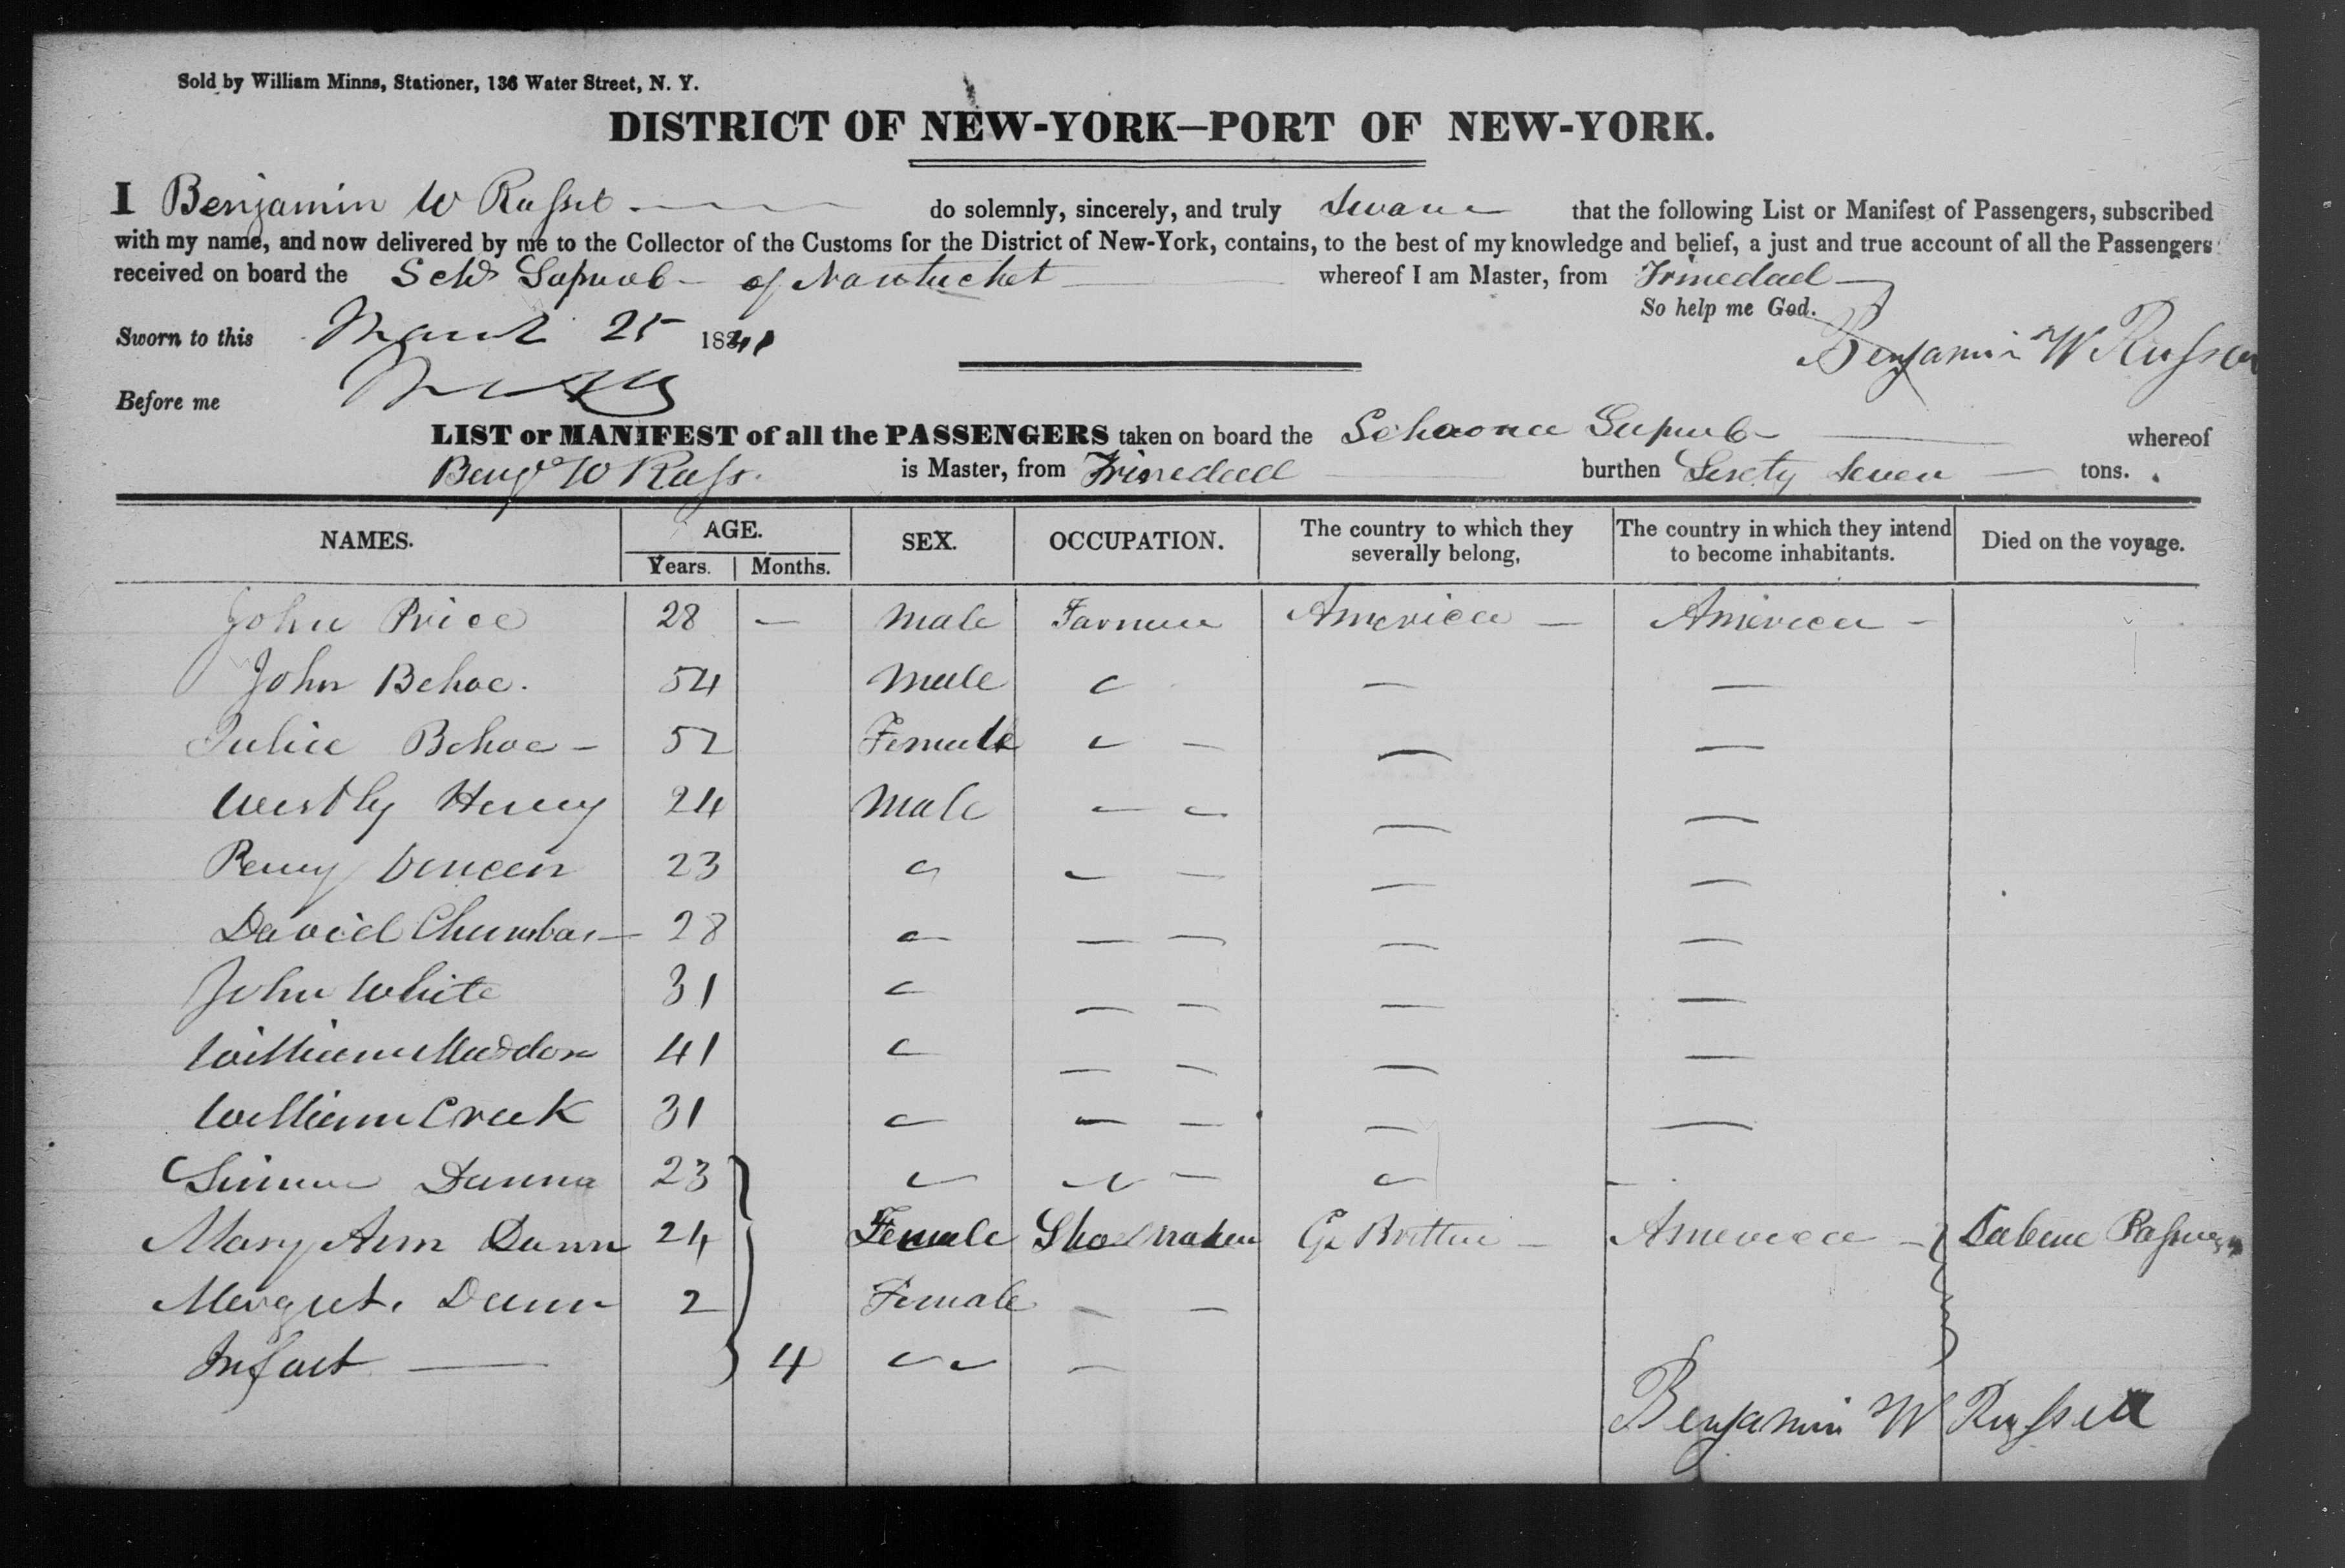 Sold by William Minns, Stationer, 136 Water Street, N. Y.
DISTRICT OF NEW-YORK—PORT OF NEW-YORK.
I Benjamin W Russel do solemnly, sincerely, and truly Sware that the following List or Manifest of Passengers, subscribed
with my name, and now delivered by me to the Collector of the Customs for the District of New-York, contains, to the best of my knowledge and belief, a just and true account of all the Passengers
received on board the Schr Superb of Nantucket whereof I am Master, from Trinedad
So help me God.
Sworn to this March 25 1841
Benjamin W Russell
Before me
LIST or MANIFEST of all the PASSENGERS taken on board the Schooner Superb whereof
Benj W Russ. is Master, from Trinedad burthen Sixty Seven tons.
NAMES. AGE. SEX. OCCUPATION. The country to which they severally belong, The country in which they intend to become inhabitants. Died on the voyage.
Years. Months.
John Price 28 — Male Farmer America — America —
John Behoe. 54 Male — —
Julice Behoe — 52 Female — — —
Westly Henry 24 Male — —
Perry 23 — — —
David Chumbar — 28 — — — —
John White 31 — — — —
William Maddox 41 — — — —
William Creek 31 — — — —
Simon Dunn 23 —
Mary Ann Dunn 24 Female Shoe Maker Gr Brittin — America — Cabene Passengers
Margret. Dunn 2 Female — —
Infant — 4 —
Benjamin W Russell